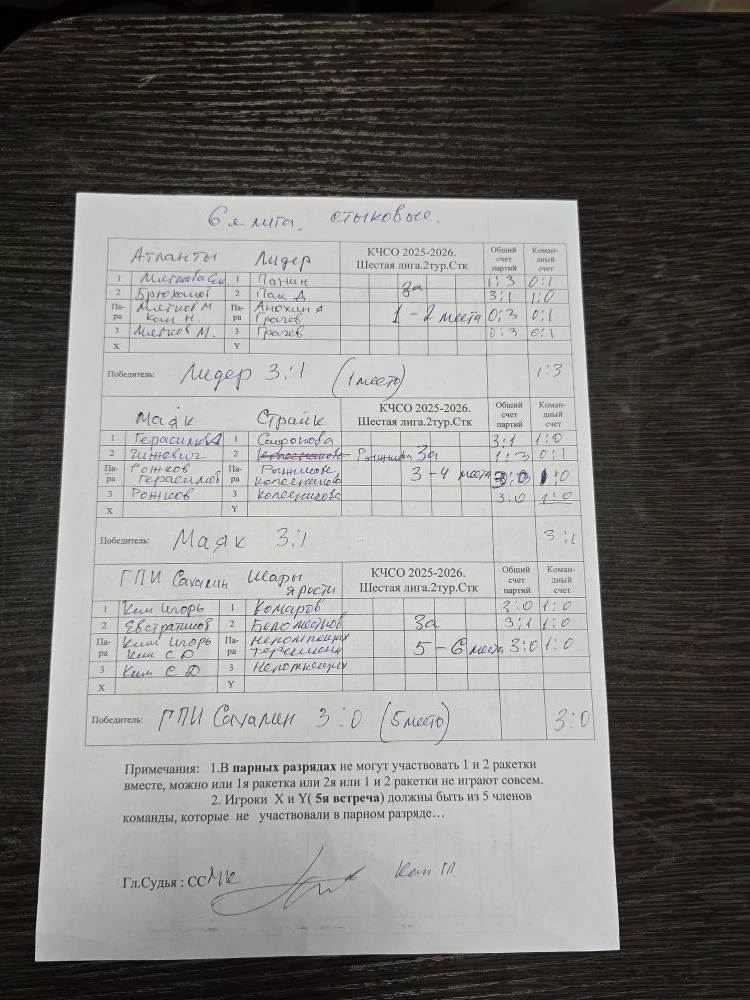 6я лига. стыковые.
Атланты Лидер КЧСО 2025-2026. Шестая лига.2тур.Стк Общий счет партий Коман-дный счет
1 1 Панин 1:3 0:1
2 2 Пак Д за 3:1 1:0
Па-ра Мятков М Кан Н. Па-ра Анохин Грачев 1-2 места 0:3 0:1
3 Мятков М. 3 Грачев 0:3 0:1
X Y
Победитель: Лидер 3:1 (1 место) 1:3
Маяк Страйк КЧСО 2025-2026. Шестая лига.2тур.Стк Общий счет партий Коман-дный счет
1 Герасимов 1 Сафонова 3:1 1:0
2 Чижович 2 за 1:3 0:1
Па-ра Рожков Герасимов Па-ра Колесникова 3-4 места 3:0 1:0
3 Рожков 3 Колесникова 3:0 1:0
X Y
Победитель: Маяк 3:1 3:1
ГПИ Сахалин Шары ярости КЧСО 2025-2026. Шестая лига.2тур.Стк Общий счет партий Коман-дный счет
1 Ким Игорь 1 Комаров 3:0 1:0
2 Евстратов 2 за 3:1 1:0
Па-ра Ким Игорь Ким С Д Па-ра 5-6 места 3:0 1:0
3 Ким С Д 3
X Y
Победитель: ГПИ Сахалин 3:0 (5 место) 3:0
Примечания: 1.В парных разрядах не могут участвовать 1 и 2 ракетки
вместе, можно или 1я ракетка или 2я или 1 и 2 ракетки не играют совсем.
2. Игроки X и Y( 5я встреча) должны быть из 5 членов
команды, которые не участвовали в парном разряде…
Гл.Судья : СС